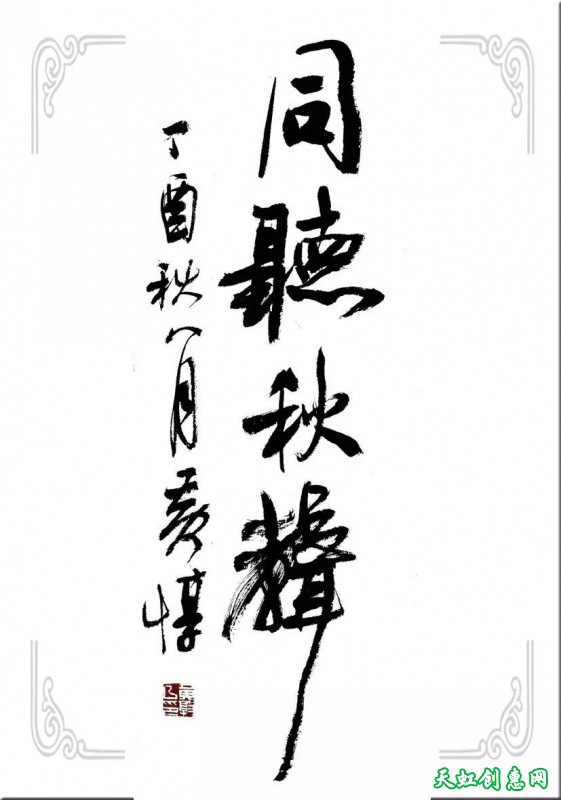 同聽秋聲
丁酉秋八月黄惇
天虹创意网